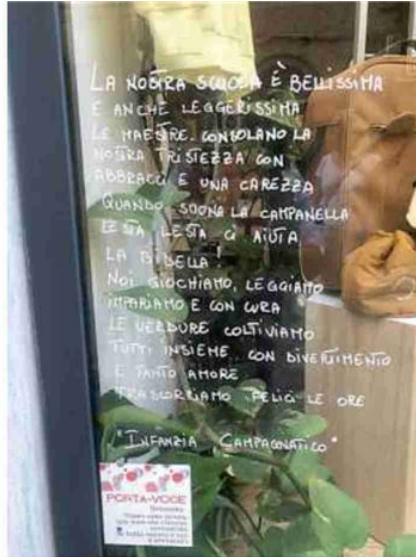 LA NOSTRA SCUOLA È BELLISSIMA
E ANCHE LEGGERISSIMA
LE MAESTRE CONSOLANO LA
NOSTRA TRISTEZZA CON
ABBRACCI E UNA CAREZZA
QUANDO SUONA LA CAMPANELLA
LESTA LESTA CI AIUTA
LA BIDELLA!
NOI GIOCHIAMO, LEGGIAMO
IMPARIAMO E CON CURA
LE VERDURE COLTIVIAMO
TUTTI INSIEME CON DIVERTIMENTO
E TANTO AMORE
TRASCORRIAMO FELICI LE ORE
"INFANZIA CAMPAGNATICO"
PORTA-VOCE